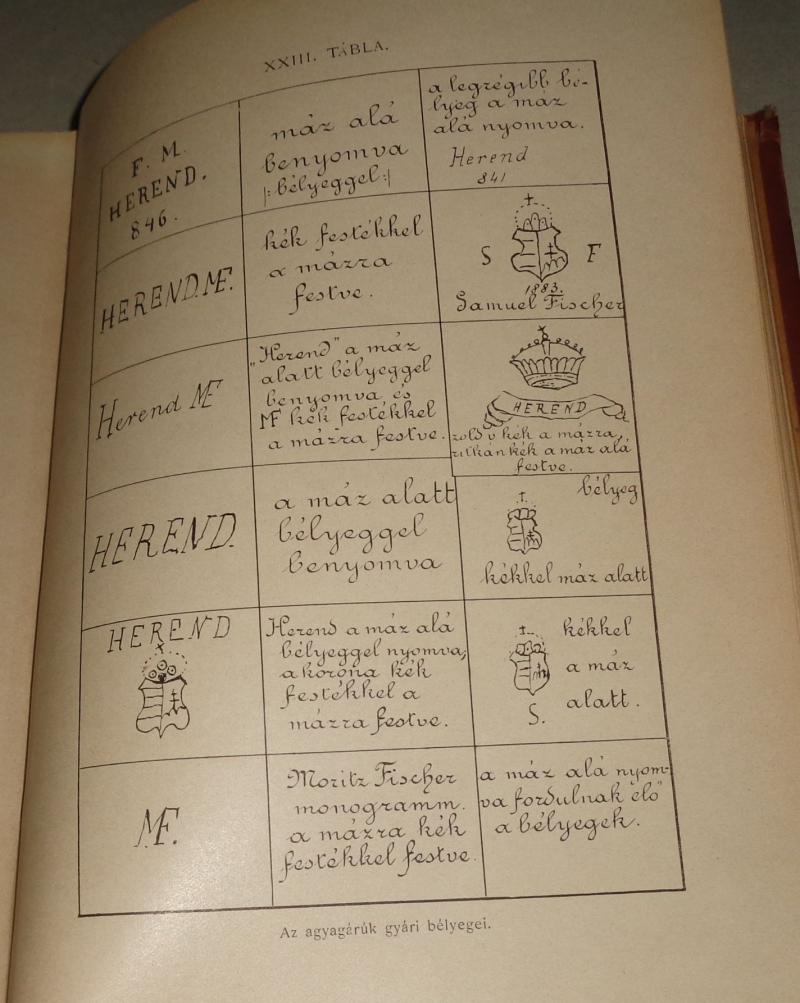 XXIII. TÁBLA.
F. M.
HEREND.
846.
máz alá
benyomva
|: bélyeggel :|
a legrégibb bé-
lyeg a máz
alá nyomva.
Herend
841
HEREND. MF.
kék festékkel
a mázra
festve.
S F
1883.
Samuel Fischer
Herend MF
"Herend" a máz
alatt bélyeggel
benyomva, és
MF kék festékkel
a mázra festve.
HEREND
kék a mázra,
ritkán kék a máz alá
festve.
HEREND.
a máz alatt
bélyeggel
benyomva
bélyeg
kékkel máz alatt
HEREND
Herend a máz alá
bélyeggel nyomva,
a korona kék
festékkel a
mázra festve.
kékkel
a máz
alatt.
S.
MF.
Moritz Fischer
monogramm.
a mázra kék
festékkel festve.
a máz alá nyom-
va fordulnak elő
a bélyegek.
Az agyagárúk gyári bélyegei.